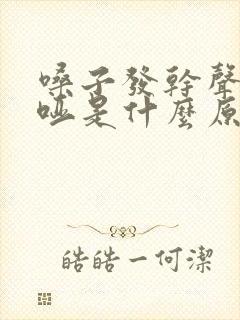 嗓子發幹聲
啞是什麼原
皓皓一何潔